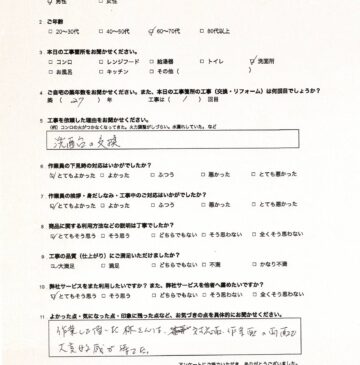 男性 女性
2 ご年齢
20～30代 40～50代 60～70代 80代以上
3 本日の工事箇所をお聞かせください。
コンロ レンジフード 給湯器 トイレ 洗面所
お風呂 キッチン その他（ ）
4 ご自宅の築年数をお聞かせください。また、本日の工事箇所の工事（交換・リフォーム）は何回目でしょうか？
築（ 27 ）年 工事は（ 1 ）回目
5 工事を依頼した理由をお聞かせください。
（例）コンロの火がつかなくなってきた。火力調整がしづらい。水漏れしていた。など
洗面台の交換
6 作業員の下見時の対応はいかがでしたか？
とてもよかった よかった ふつう 悪かった とても悪かった
7 作業員の挨拶・身だしなみ・工事中のご対応はいかがでしたか？
とてもよかった よかった ふつう 悪かった とても悪かった
8 商品に関する利用方法などの説明は丁寧でしたか？
とてもそう思う そう思う どちらでもない そう思わない 全くそう思わない
9 工事の品質（仕上がり）にご満足いただけましたか？
大満足 満足 どちらでもない 不満 かなり不満
10 弊社サービスをまた利用したいですか？また、弊社サービスを他者へ薦めたいですか？
とてもそう思う そう思う どちらでもない そう思わない 全くそう思わない
11 よかった点・気になった点・印象に残った点など、お気づきの点を具体的にお聞かせください。
作業した頂いた 様さんは、 対応面、作業面の両面で
大変好感が持てた。
アンケートにご協力いただき、ありがとうございました。